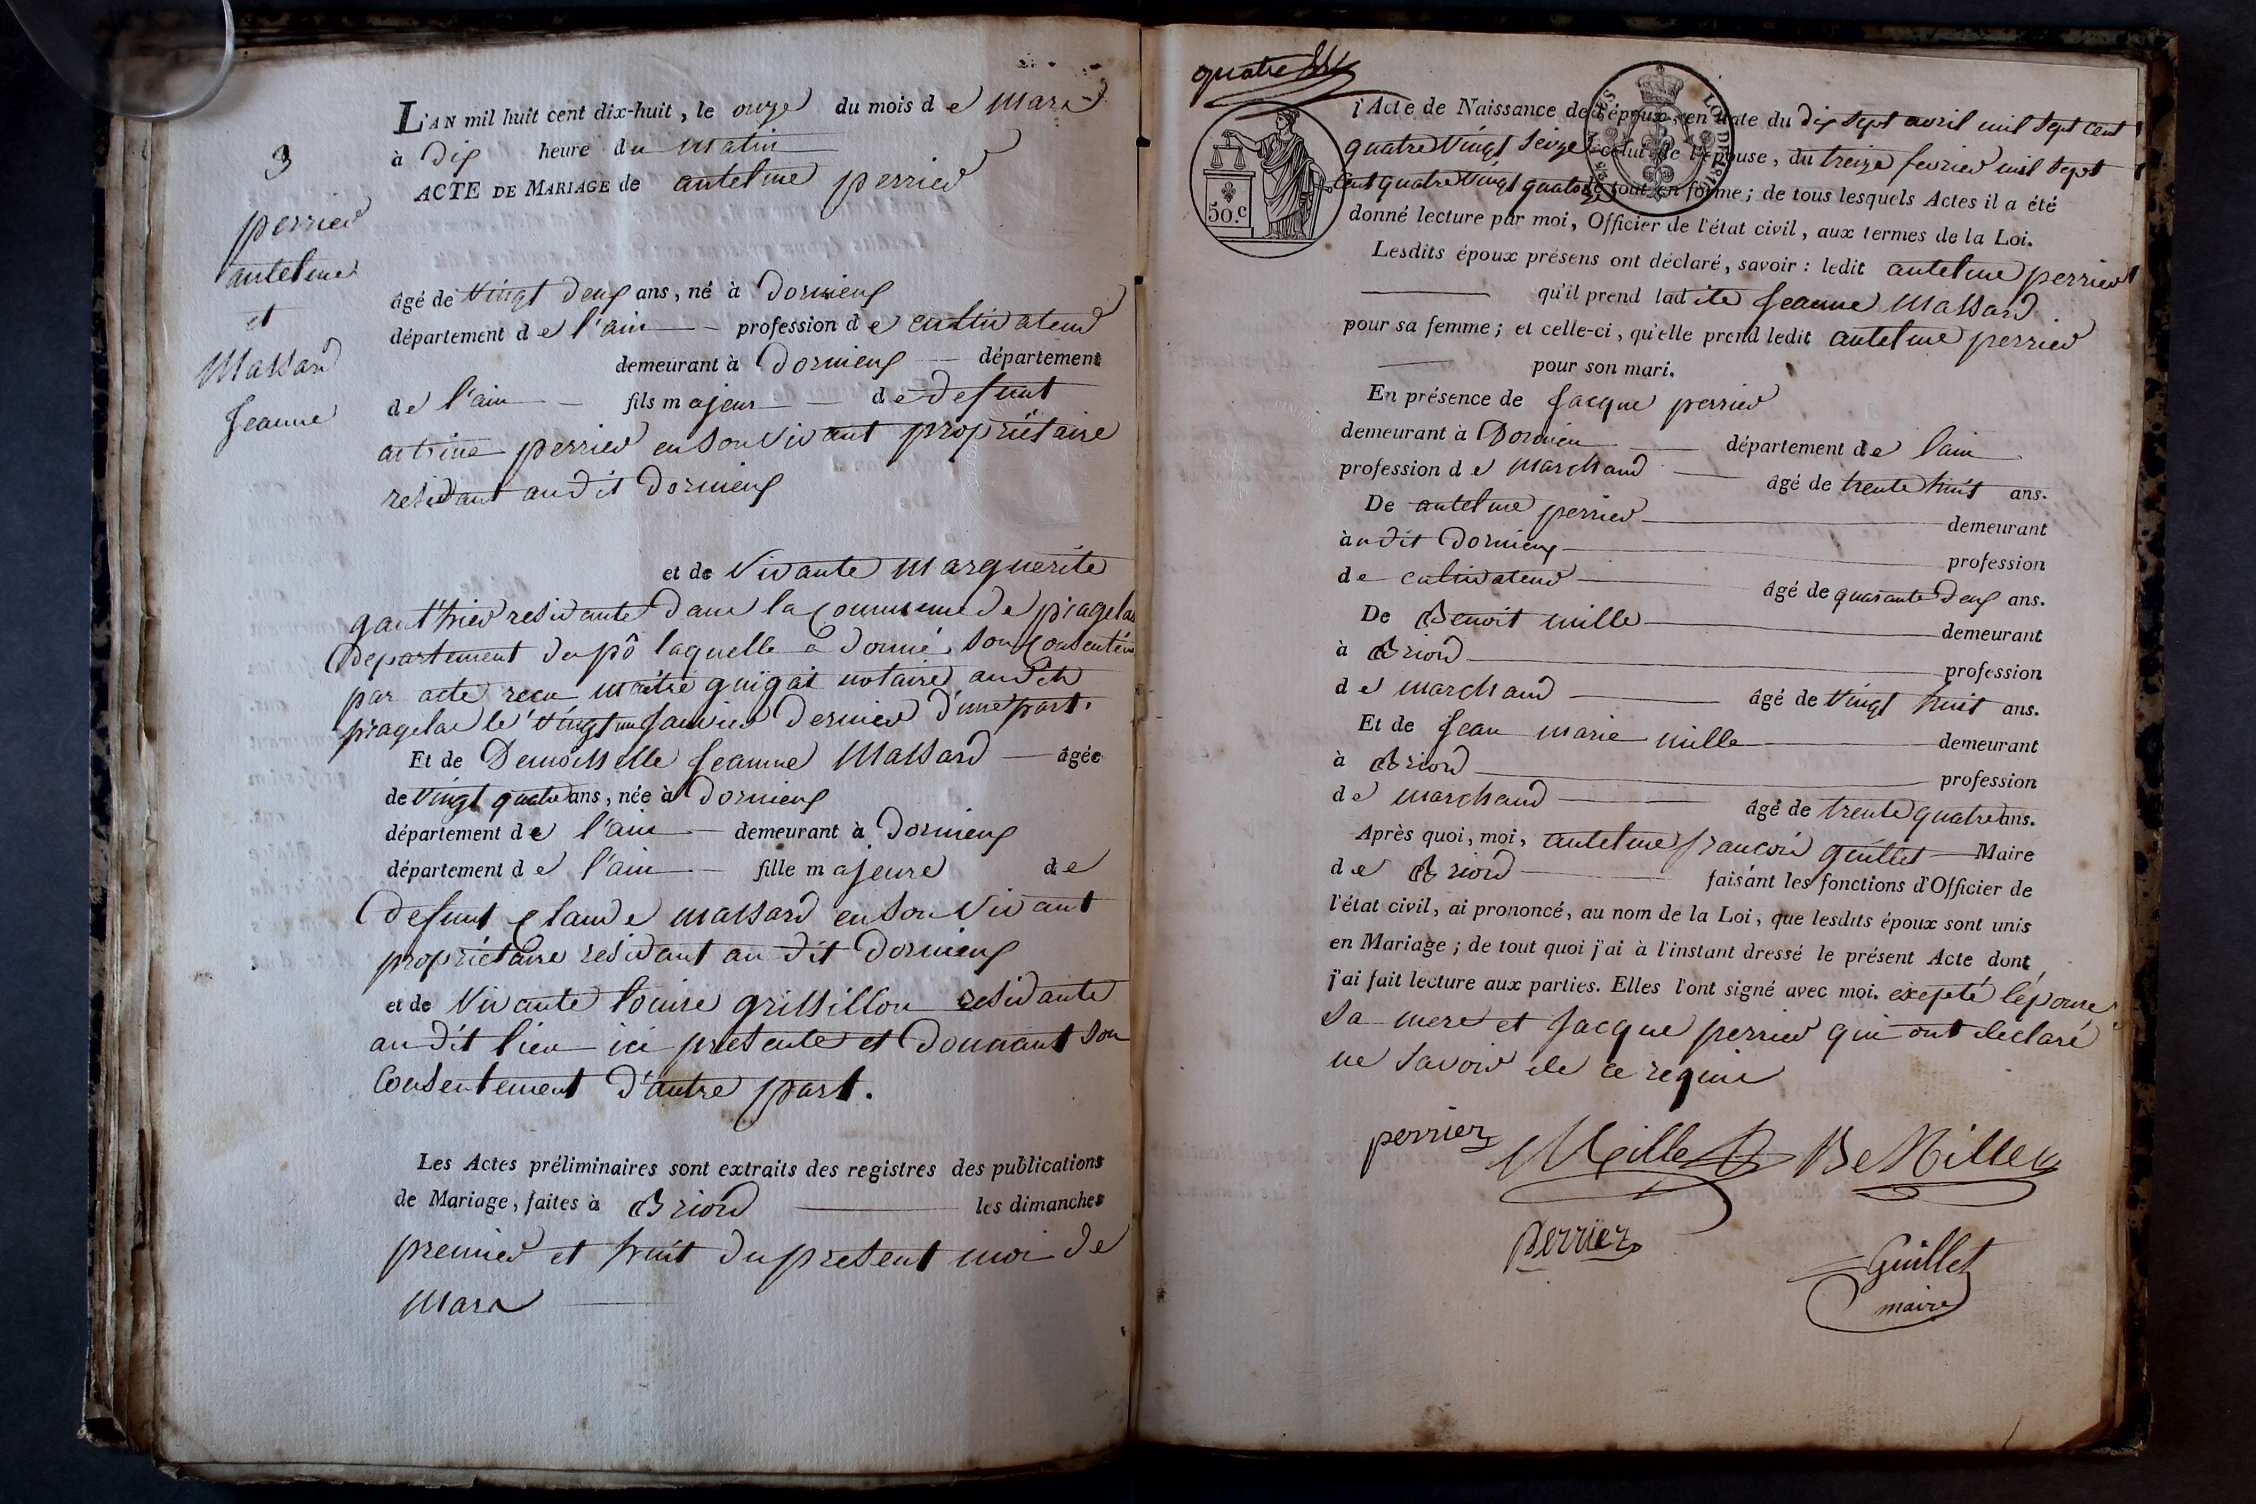 3
perrier
antelme
et
Massard
Jeanne
L'AN mil huit cent dix-huit, le onze du mois de Mars
à dix heure du matin
ACTE DE MARIAGE de antelme perrier
âgé de vingt deux ans, né à Dornieux
département de l'ain profession de cultivateur
demeurant à Dornieux département
de l'ain fils majeur de defunt
antoine perrier en son vivant propriétaire
residant audit Dornieux
et de vivante Marguerite
gauthier residante dans la commune de pragelas
Departement du pô laquelle a donné son consentem
par acte recu maitre guigat notaire audit
pragelas le vingt un Janvier dernier d'une part.
Et de Demoisselle Jeanne Massard âgée
de vingt quatre ans, née à Dornieux
département de l'ain demeurant à Dornieux
département de l'ain fille majeure de
Defunt Claude massard en son vivant
propriétaire residant au dit Dornieux
et de vivante louise grissillon residante
audit lieu ici presente et donnant son
Consentement d'autre part.
Les Actes préliminaires sont extraits des registres des publications
de Mariage, faites à Briord les dimanches
premier et huit du present moi de
Mars
quatre
l'Acte de Naissance de l'époux, en date du dix sept avril mil sept cent
quatre vingt seize celui de l'épouse, du treize fevrier mil sept
cent quatre vingt quatorze tout en forme; de tous lesquels Actes il a été
50.c
donné lecture par moi, Officier de l'état civil, aux termes de la Loi.
Lesdits époux présens ont déclaré, savoir: ledit antelme perrier
qu'il prend ladite Jeanne Massard
pour sa femme; et celle-ci, qu'elle prend ledit antelme perrier
pour son mari.
En présence de Jacque perrier
demeurant à Dornieu département de l'ain
profession de marchand âgé de trente huit ans.
De antelme perrier demeurant
à audit Dornieux profession
de cultivateur âgé de quarante deux ans.
De Benoit mille demeurant
à Briord profession
de marchand âgé de vingt huit ans.
Et de Jean marie mille demeurant
à Briord profession
de marchand âgé de trente quatre ans.
Après quoi, moi, antelme francois guillet Maire
de Briord faisant les fonctions d'Officier de
l'état civil, ai prononcé, au nom de la Loi, que lesdits époux sont unis
en Mariage; de tout quoi j'ai à l'instant dressé le présent Acte dont
j'ai fait lecture aux parties. Elles l'ont signé avec moi. exepté l'epouse
sa mere et Jacque perrier qui ont declaré
ne savoir de ce requis
perrier Mille B Mille
perrier
Guillet
maire